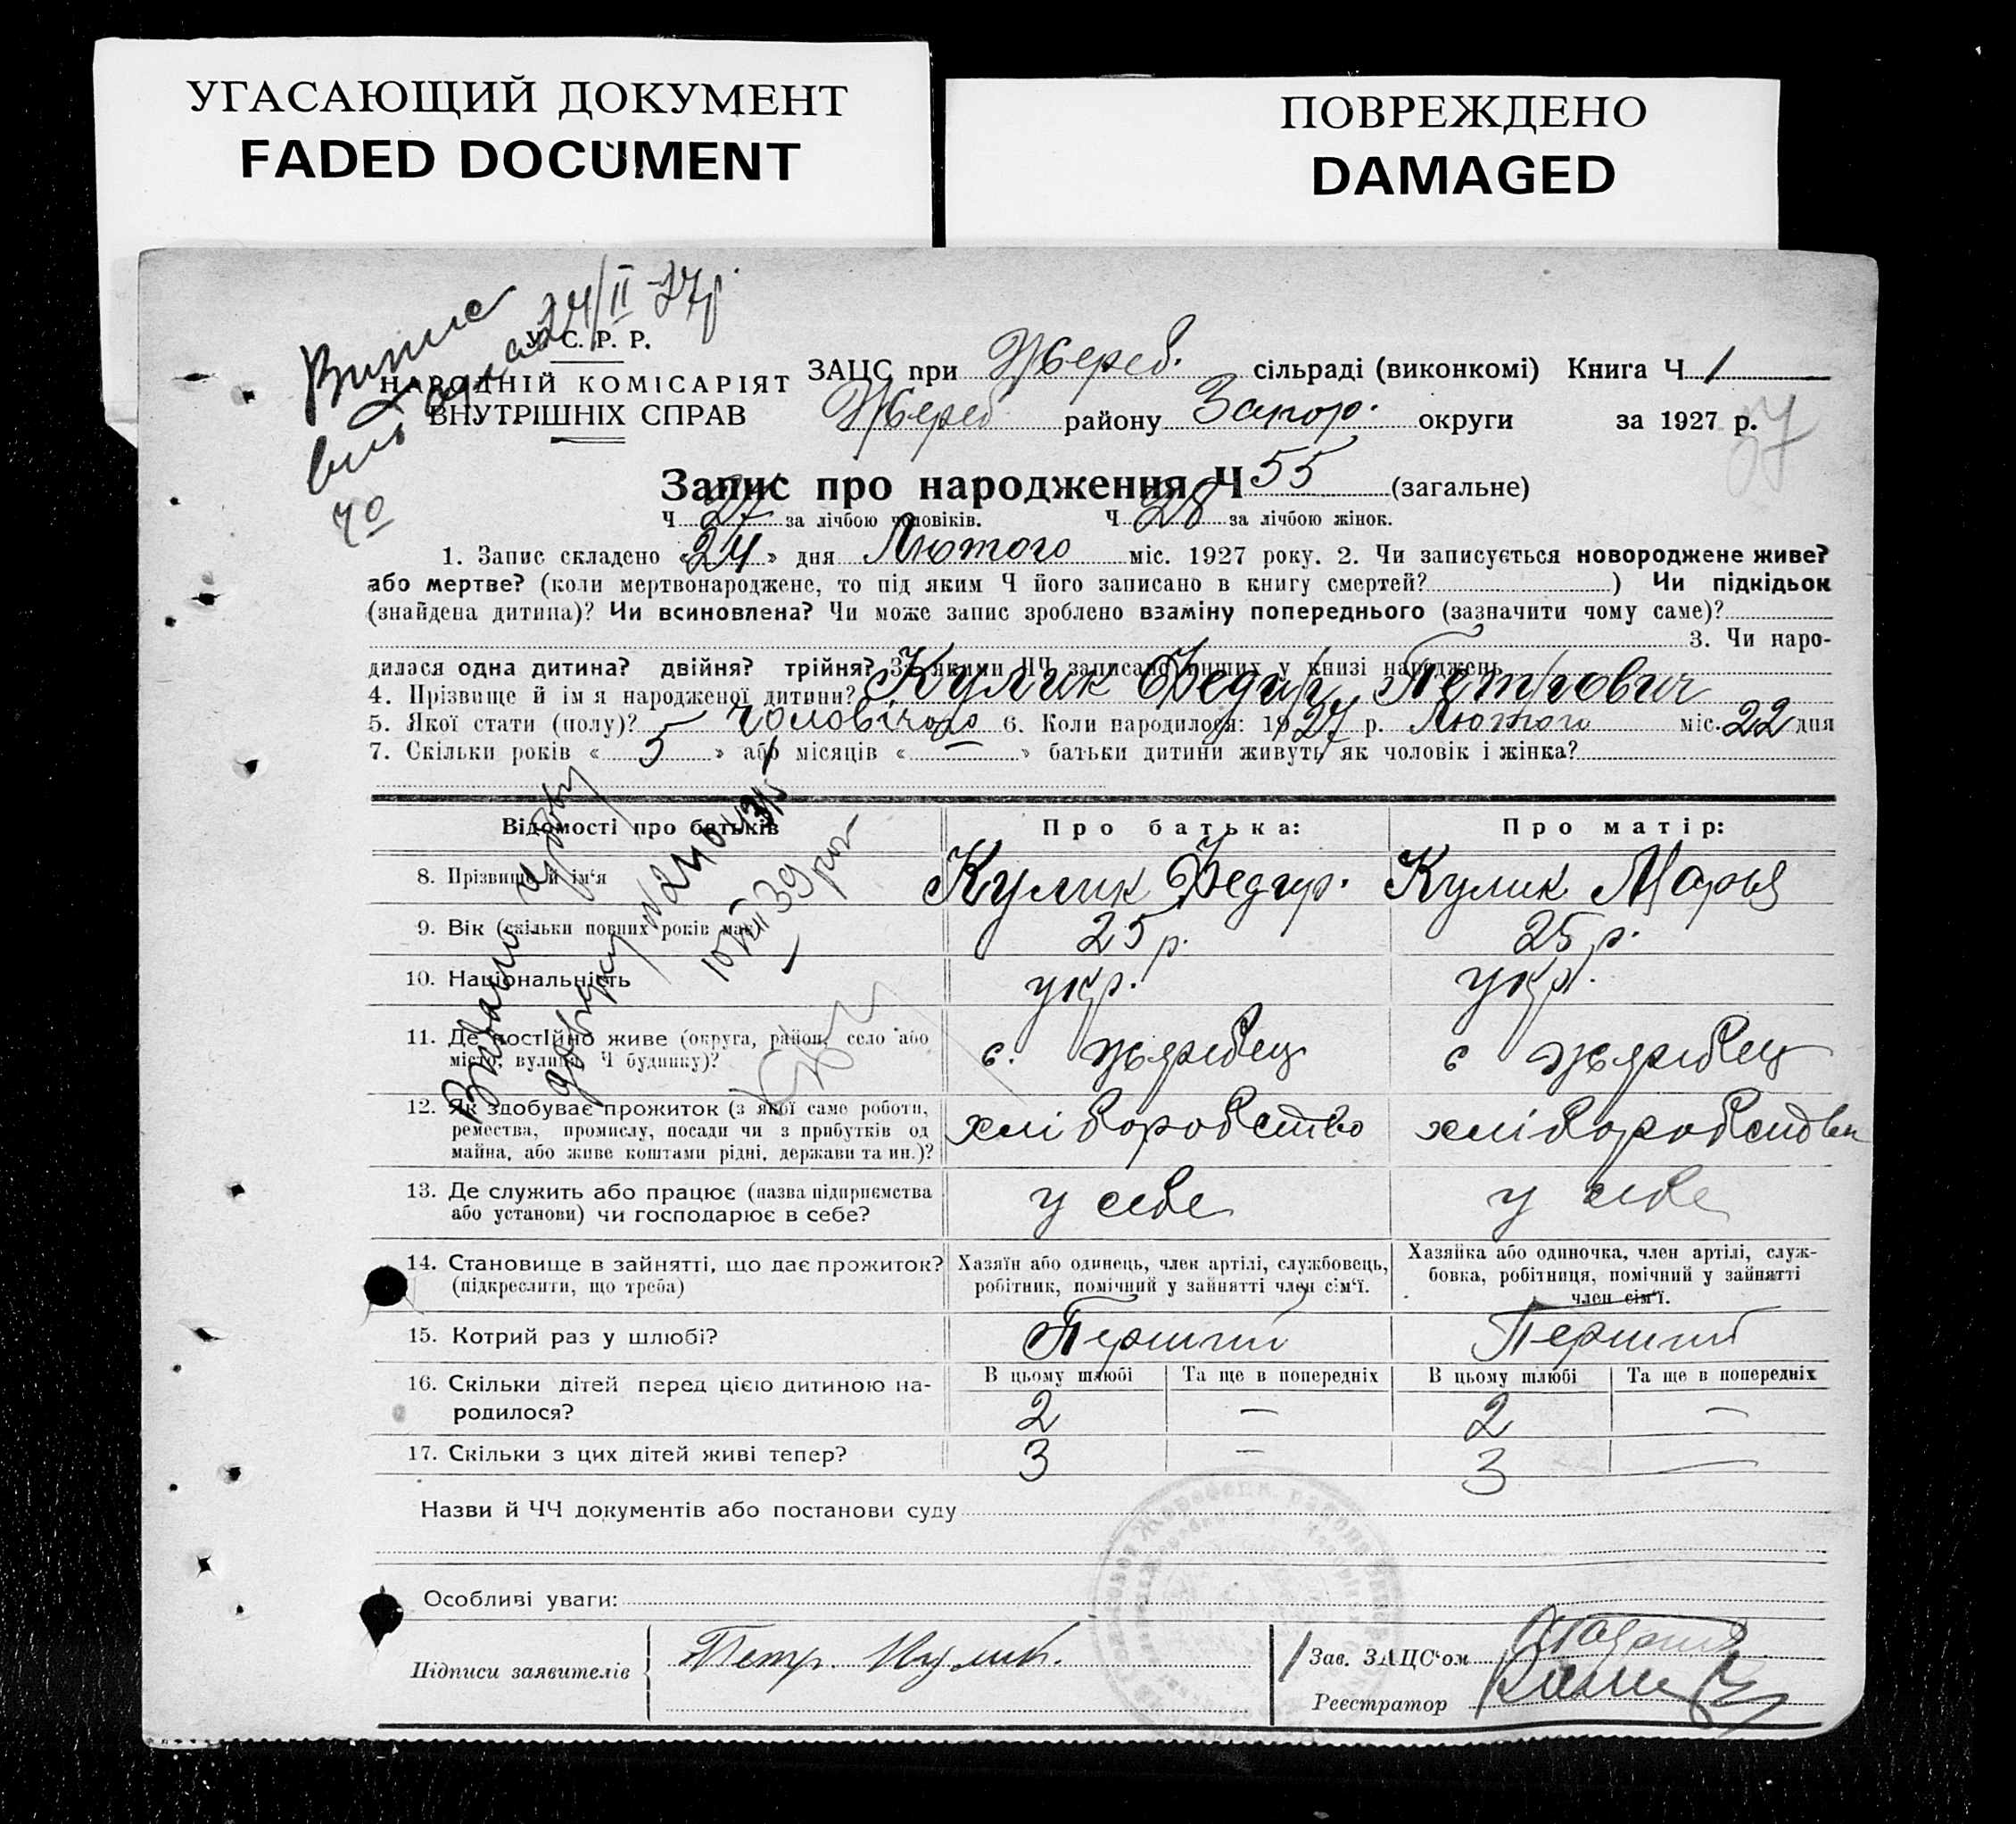 УГАСАЮЩИЙ ДОКУМЕНТ
FADED DOCUMENT
ПОВРЕЖДЕНО
DAMAGED
Випис 24/II-27р.
У. С. Р. Р.
НАРОДНІЙ КОМІСАРІЯТ
ВНУТРІШНІХ СПРАВ
ЗАЦС при Жереб. сільраді (виконкомі) Книга Ч 1
Жереб району Запор. округи за 1927 р.
37
Запис про народження Ч 55 (загальне)
Ч 27 за лічбою чоловіків. Ч 28 за лічбою жінок.
1. Запис складено «24» дня Лютого міс. 1927 року. 2. Чи записується новороджене живе?
або мертве? (коли мертвонароджене, то під яким Ч його записано в книгу смертей? ) Чи підкідьок
(знайдена дитина)? Чи всиновлена? Чи може запис зроблено взаміну попереднього (зазначити чому саме)?
3. Чи наро-
дилася одна дитина? двійня? трійня? За якими ЧЧ записано инших у книзі народжень
4. Прізвище й ім'я народженої дитини? Кулик Федир Петрович
5. Якої стати (полу)? чоловічого 6. Коли народилося: 1927 р. Лютого міс. 22 дня
7. Скільки років «5» або місяців «—» батьки дитини живуть як чоловік і жінка?
Відомості про батьків
Про батька:
Про матір:
8. Прізвище й ім'я Кулик Федир. Кулик Марья
9. Вік (скільки повних років має) 25 р. 25 р.
10. Національність укр. укр.
11. Де постійно живе (округа, район, село або
місто, вулиця, Ч будинку)? с. Жеребец с Жеребец
12. Як здобуває прожиток (з якої саме роботи,
ремества, промислу, посади чи з прибутків од
майна, або живе коштами рідні, держави та ин.)? хліборобство хліборобство
13. Де служить або працює (назва підприємства
або установи) чи господарює в себе? у себе у себе
14. Становище в зайнятті, що дає прожиток?
(підкреслити, що треба)
Хазяїн або одинець, член артілі, службовець,
робітник, помічний у зайнятті член сім'ї.
Хазяйка або одиночка, член артілі, служ-
бовка, робітниця, помічний у зайнятті
член сім'ї.
15. Котрий раз у шлюбі? Перший Перший
В цьому шлюбі Та ще в попередніх В цьому шлюбі Та ще в попередніх
16. Скільки дітей перед цією дитиною на-
родилося? 2 — 2 —
17. Скільки з цих дітей живі тепер? 3 — 3 —
Назви й ЧЧ документів або постанови суду
Особливі уваги:
Підписи заявителів Петр. Кулик.
Зав. ЗАЦС'ом
Реєстратор